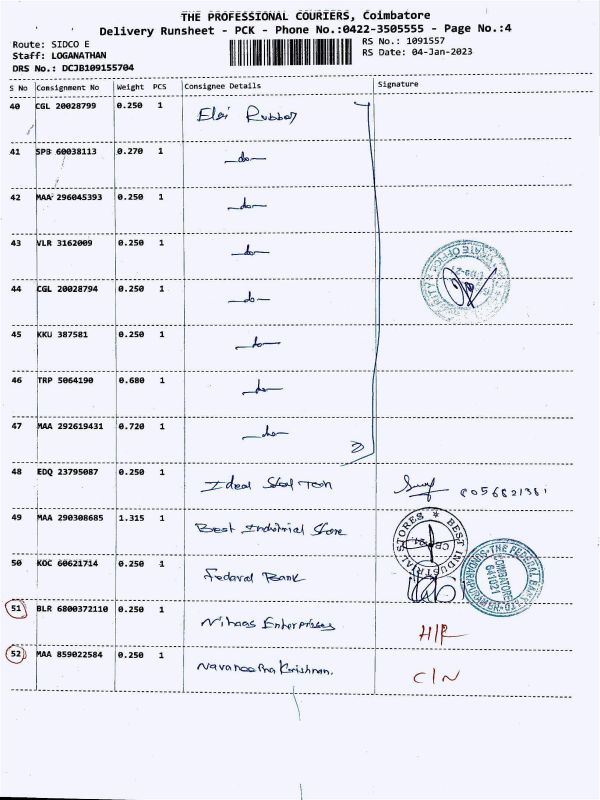 THE PROFESSIONAL COURIERS, Coimbatore
Delivery Runsheet - PCK - Phone No.:0422-3505555 - Page No.:4
Route: SIDCO E
RS No.: 1091557
Staff: LOGANATHAN
RS Date: 04-Jan-2023
DRS No.: DCJB109155704
S No Consignment No Weight PCS Consignee Details Signature
40 CGL 20028799 0.250 1 Elgi Rubber
41 SPB 60038113 0.270 1 -do-
42 MAA 296045393 0.250 1 -do-
43 VLR 3162009 0.250 1 -do-
44 CGL 20028794 0.250 1 -do-
45 KKU 387581 0.250 1 -do-
46 TRP 5064190 0.680 1 -do-
47 MAA 292619431 0.720 1 -do-
48 EDQ 23795087 0.250 1 Ideal 8056821381
49 MAA 290308685 1.315 1 Best Industrial Store
BEST INDUSTRIAL STORES
50 KOC 60621714 0.250 1 Fedaral Bank
THE FEDERAL BANK LTD
COIMBATORE
641021
51 BLR 6800372110 0.250 1 Nihaas Enterprises H/R
52 MAA 859022584 0.250 1 Navaneetha Krishnan. C/N